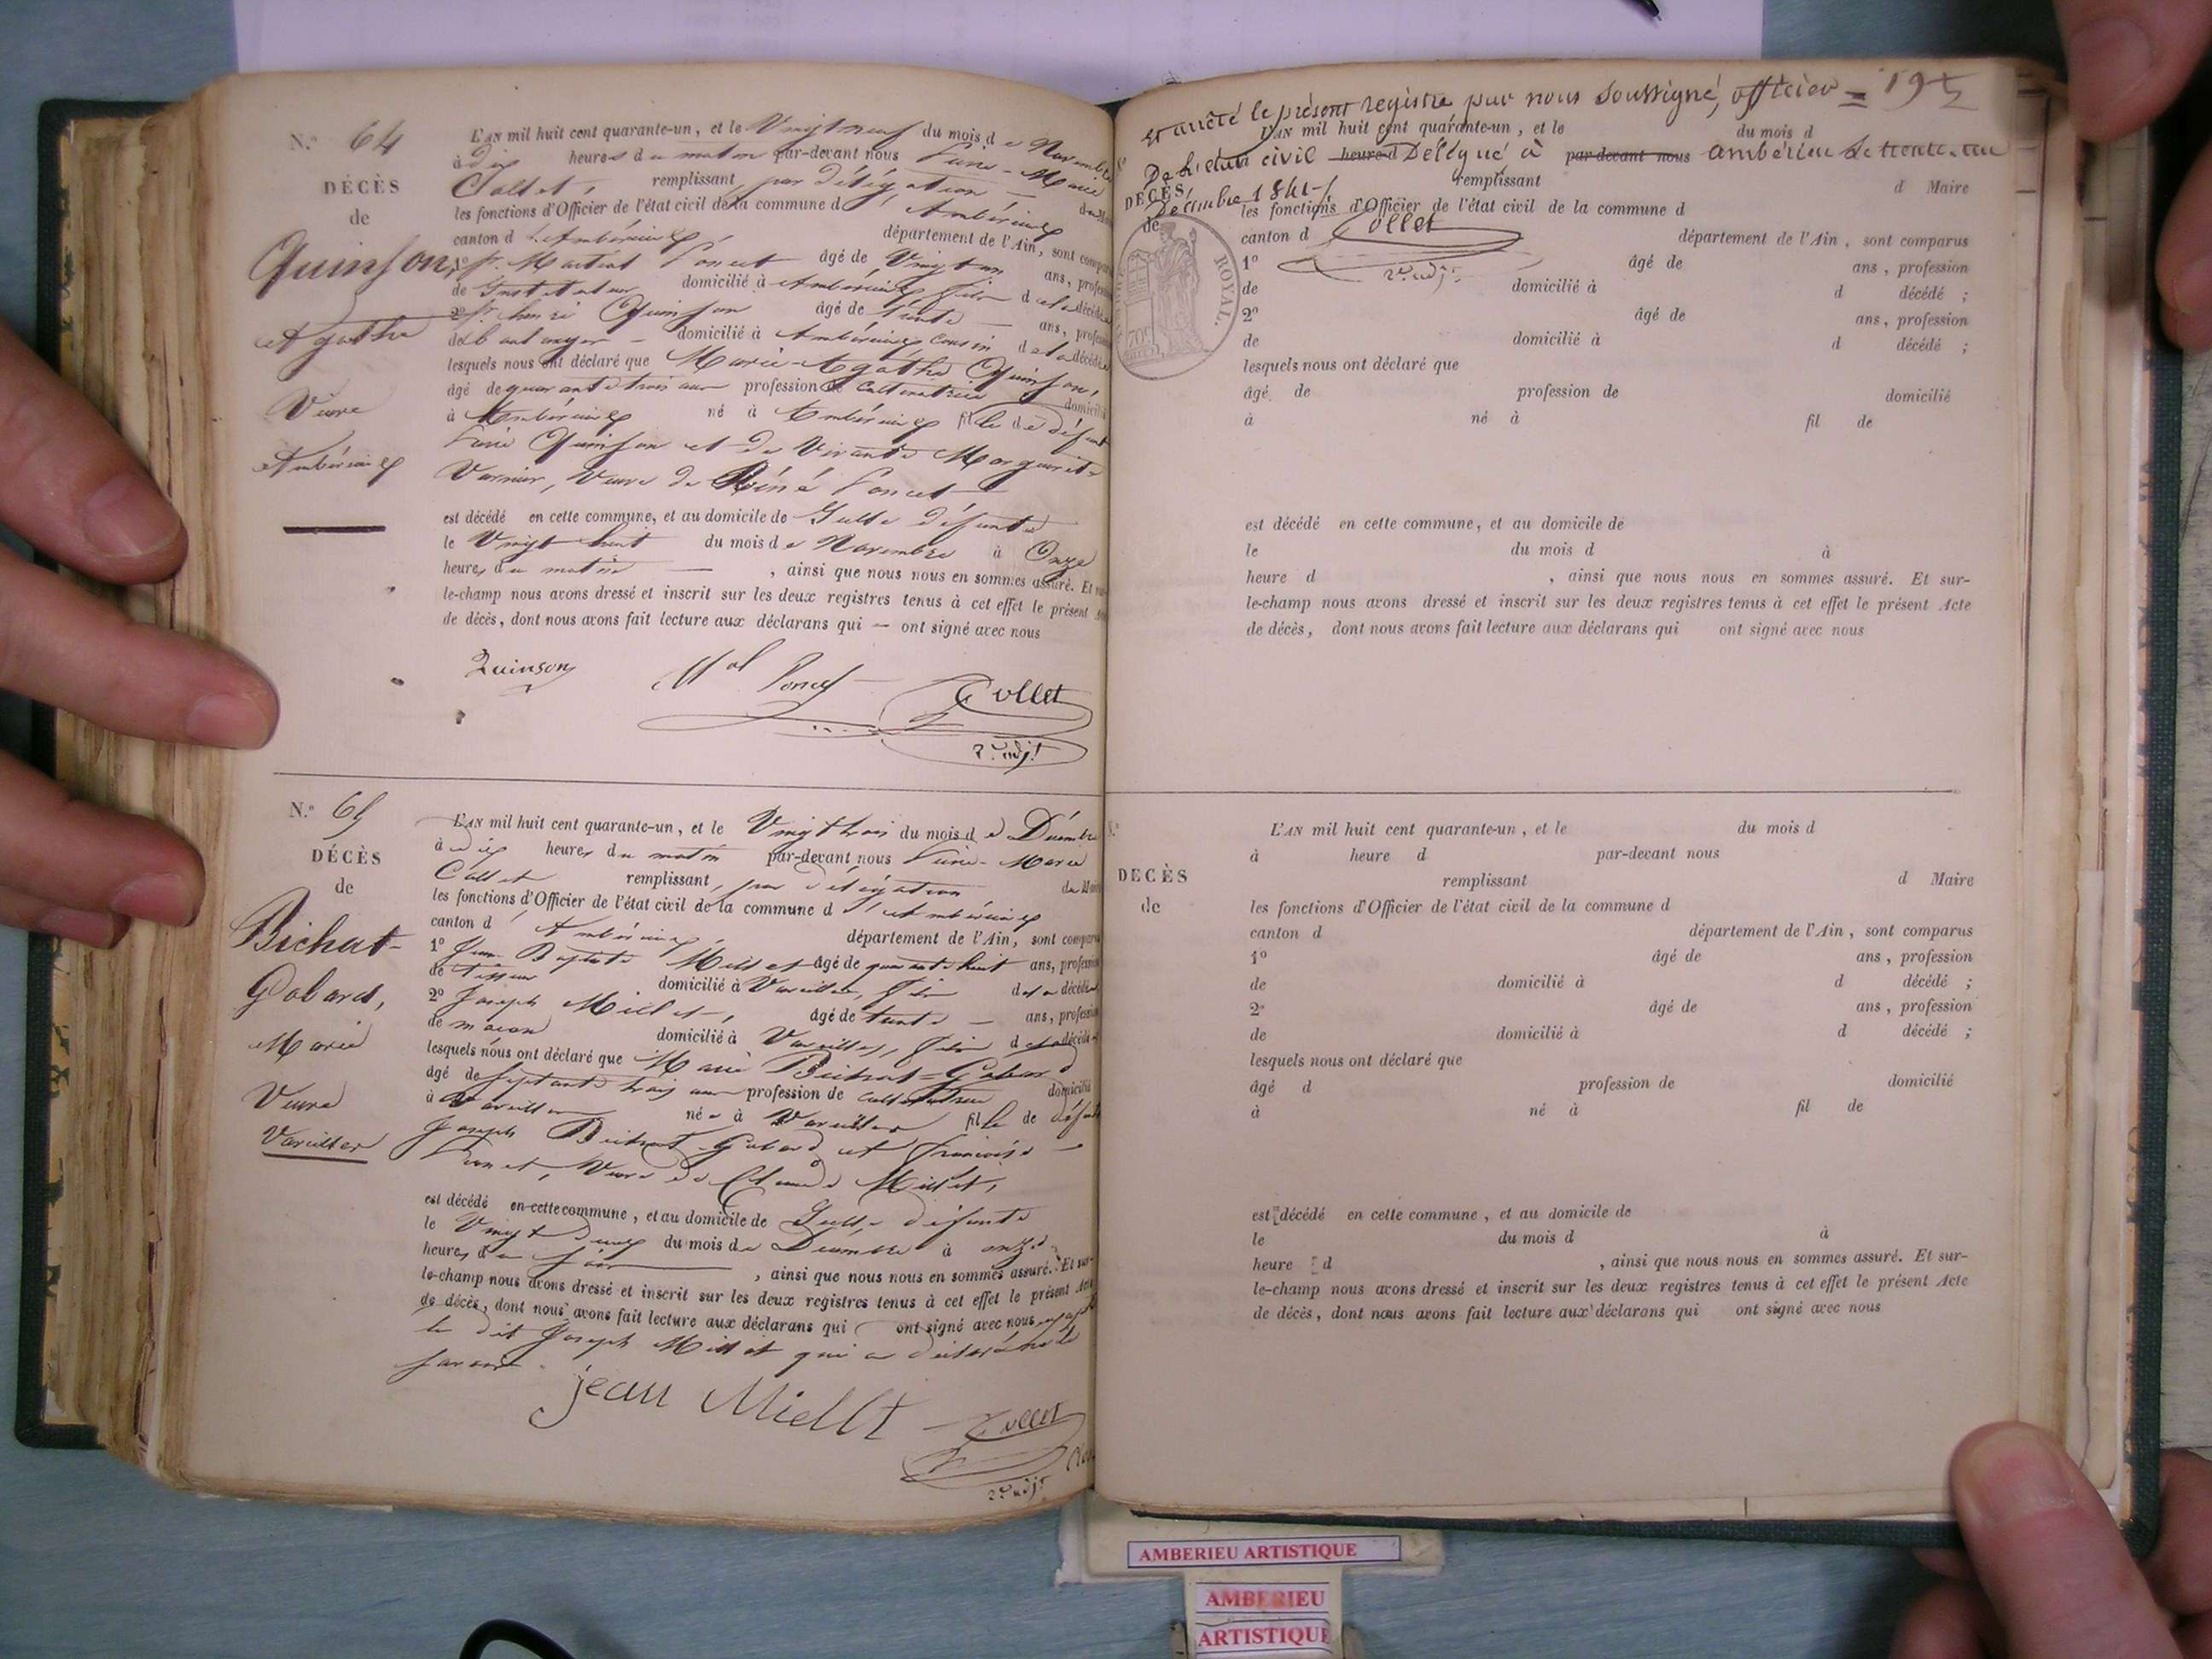 N.° 64
DÉCÈS
de
Quinson,
Agathe
Veuve
Ambérieux
L'AN mil huit cent quarante-un, et le Vingt neuf du mois de Novembre
à dix heures du matin par-devant nous Marie
Collet, remplissant, par délégation du
les fonctions d'Officier de l'état civil de la commune d'Ambérieux
canton d'Ambérieux, département de l'Ain, sont comparus
1° Sr. Martial Poncet âgé de Vingt un ans, profession
de Instituteur domicilié à Ambérieux fils de la décédée
2° Sr. henri Quinson âgé de trente — ans, profession
de domicilié à Ambérieux cousin de la décédée
lesquels nous ont déclaré que Marie-Agathe Quinson,
âgé de quarante trois ans profession de Cultivatrice domicilié
à Ambérieux né à Ambérieux fille de défunt
Quinson et de Vivante Marguerite
Varnier, Veuve de Réné Poncet —
est décédé en cette commune, et au domicile de Selle défunte
le Vingt huit du mois de Novembre à Onze
heures du matin — , ainsi que nous nous en sommes assuré. Et sur-
le-champ nous avons dressé et inscrit sur les deux registres tenus à cet effet le présent Acte
de décès, dont nous avons fait lecture aux déclarans qui — ont signé avec nous
Quinson Mal Poncet Collet
2e. adjt.
N.° 65
DÉCÈS
de
Bichat-
Gobard,
Marie
Veuve
Vareilles
L'AN mil huit cent quarante-un, et le Vingt trois du mois de Décembre
à dix heures du matin par-devant nous Marie
Collet remplissant, par délégation du
les fonctions d'Officier de l'état civil de la commune d'Ambérieux
canton d'Ambérieux, département de l'Ain, sont comparus
1° Jean Baptiste Millet âgé de quarante huit ans, profession
de tisseur domicilié à Vareilles, fils de la décédée
2° Joseph Millet, âgé de trente — ans, profession
de maçon domicilié à Vareilles, fils de la décédée
lesquels nous ont déclaré que Marie Bichat-Gobard
âgé de septante trois ans profession de cultivatrice domicilié
à Vareilles née à Vareilles fille de défunt
Joseph Bichat Gobard et françoise —
Veuve de Claude Millet,
est décédé en cette commune, et au domicile de Selle défunte
le Vingt deux du mois de Décembre à onze
heures du soir — , ainsi que nous nous en sommes assuré. Et sur-
le-champ nous avons dressé et inscrit sur les deux registres tenus à cet effet le présent Acte
de décès, dont nous avons fait lecture aux déclarans qui ont signé avec nous
le dit Joseph Millet qui a déclaré ne le
savoir.
jean Miellt Collet
2e. adjt
et arrêté le présent registre par nous soussigné, officier = 195
L'AN mil huit cent quarante-un, et le du mois d
De l'état civil heure d Délégué à par-devant nous ambérieu le trente-un
Décembre 1841
DÉCÈS
de
remplissant d Maire
les fonctions d'Officier de l'état civil de la commune d
Collet
2e. adjt.
canton d département de l'Ain, sont comparus
ROYAL.
1° âgé de ans, profession
de domicilié à d décédé ;
2° âgé de ans, profession
de domicilié à d décédé ;
lesquels nous ont déclaré que
âgé de profession de domicilié
à né à fil de
est décédé en cette commune, et au domicile de
le du mois d à
heure d , ainsi que nous nous en sommes assuré. Et sur-
le-champ nous avons dressé et inscrit sur les deux registres tenus à cet effet le présent Acte
de décès, dont nous avons fait lecture aux déclarans qui ont signé avec nous
N.°
DÉCÈS
de
L'AN mil huit cent quarante-un, et le du mois d
à heure d par-devant nous
remplissant d Maire
les fonctions d'Officier de l'état civil de la commune d
canton d département de l'Ain, sont comparus
1° âgé de ans, profession
de domicilié à d décédé ;
2° âgé de ans, profession
de domicilié à d décédé ;
lesquels nous ont déclaré que
âgé d profession de domicilié
à né à fil de
est décédé en cette commune, et au domicile de
le du mois d à
heure d , ainsi que nous nous en sommes assuré. Et sur-
le-champ nous avons dressé et inscrit sur les deux registres tenus à cet effet le présent Acte
de décès, dont nous avons fait lecture aux déclarans qui ont signé avec nous
AMBERIEU ARTISTIQUE
AMBERIEU
ARTISTIQUE